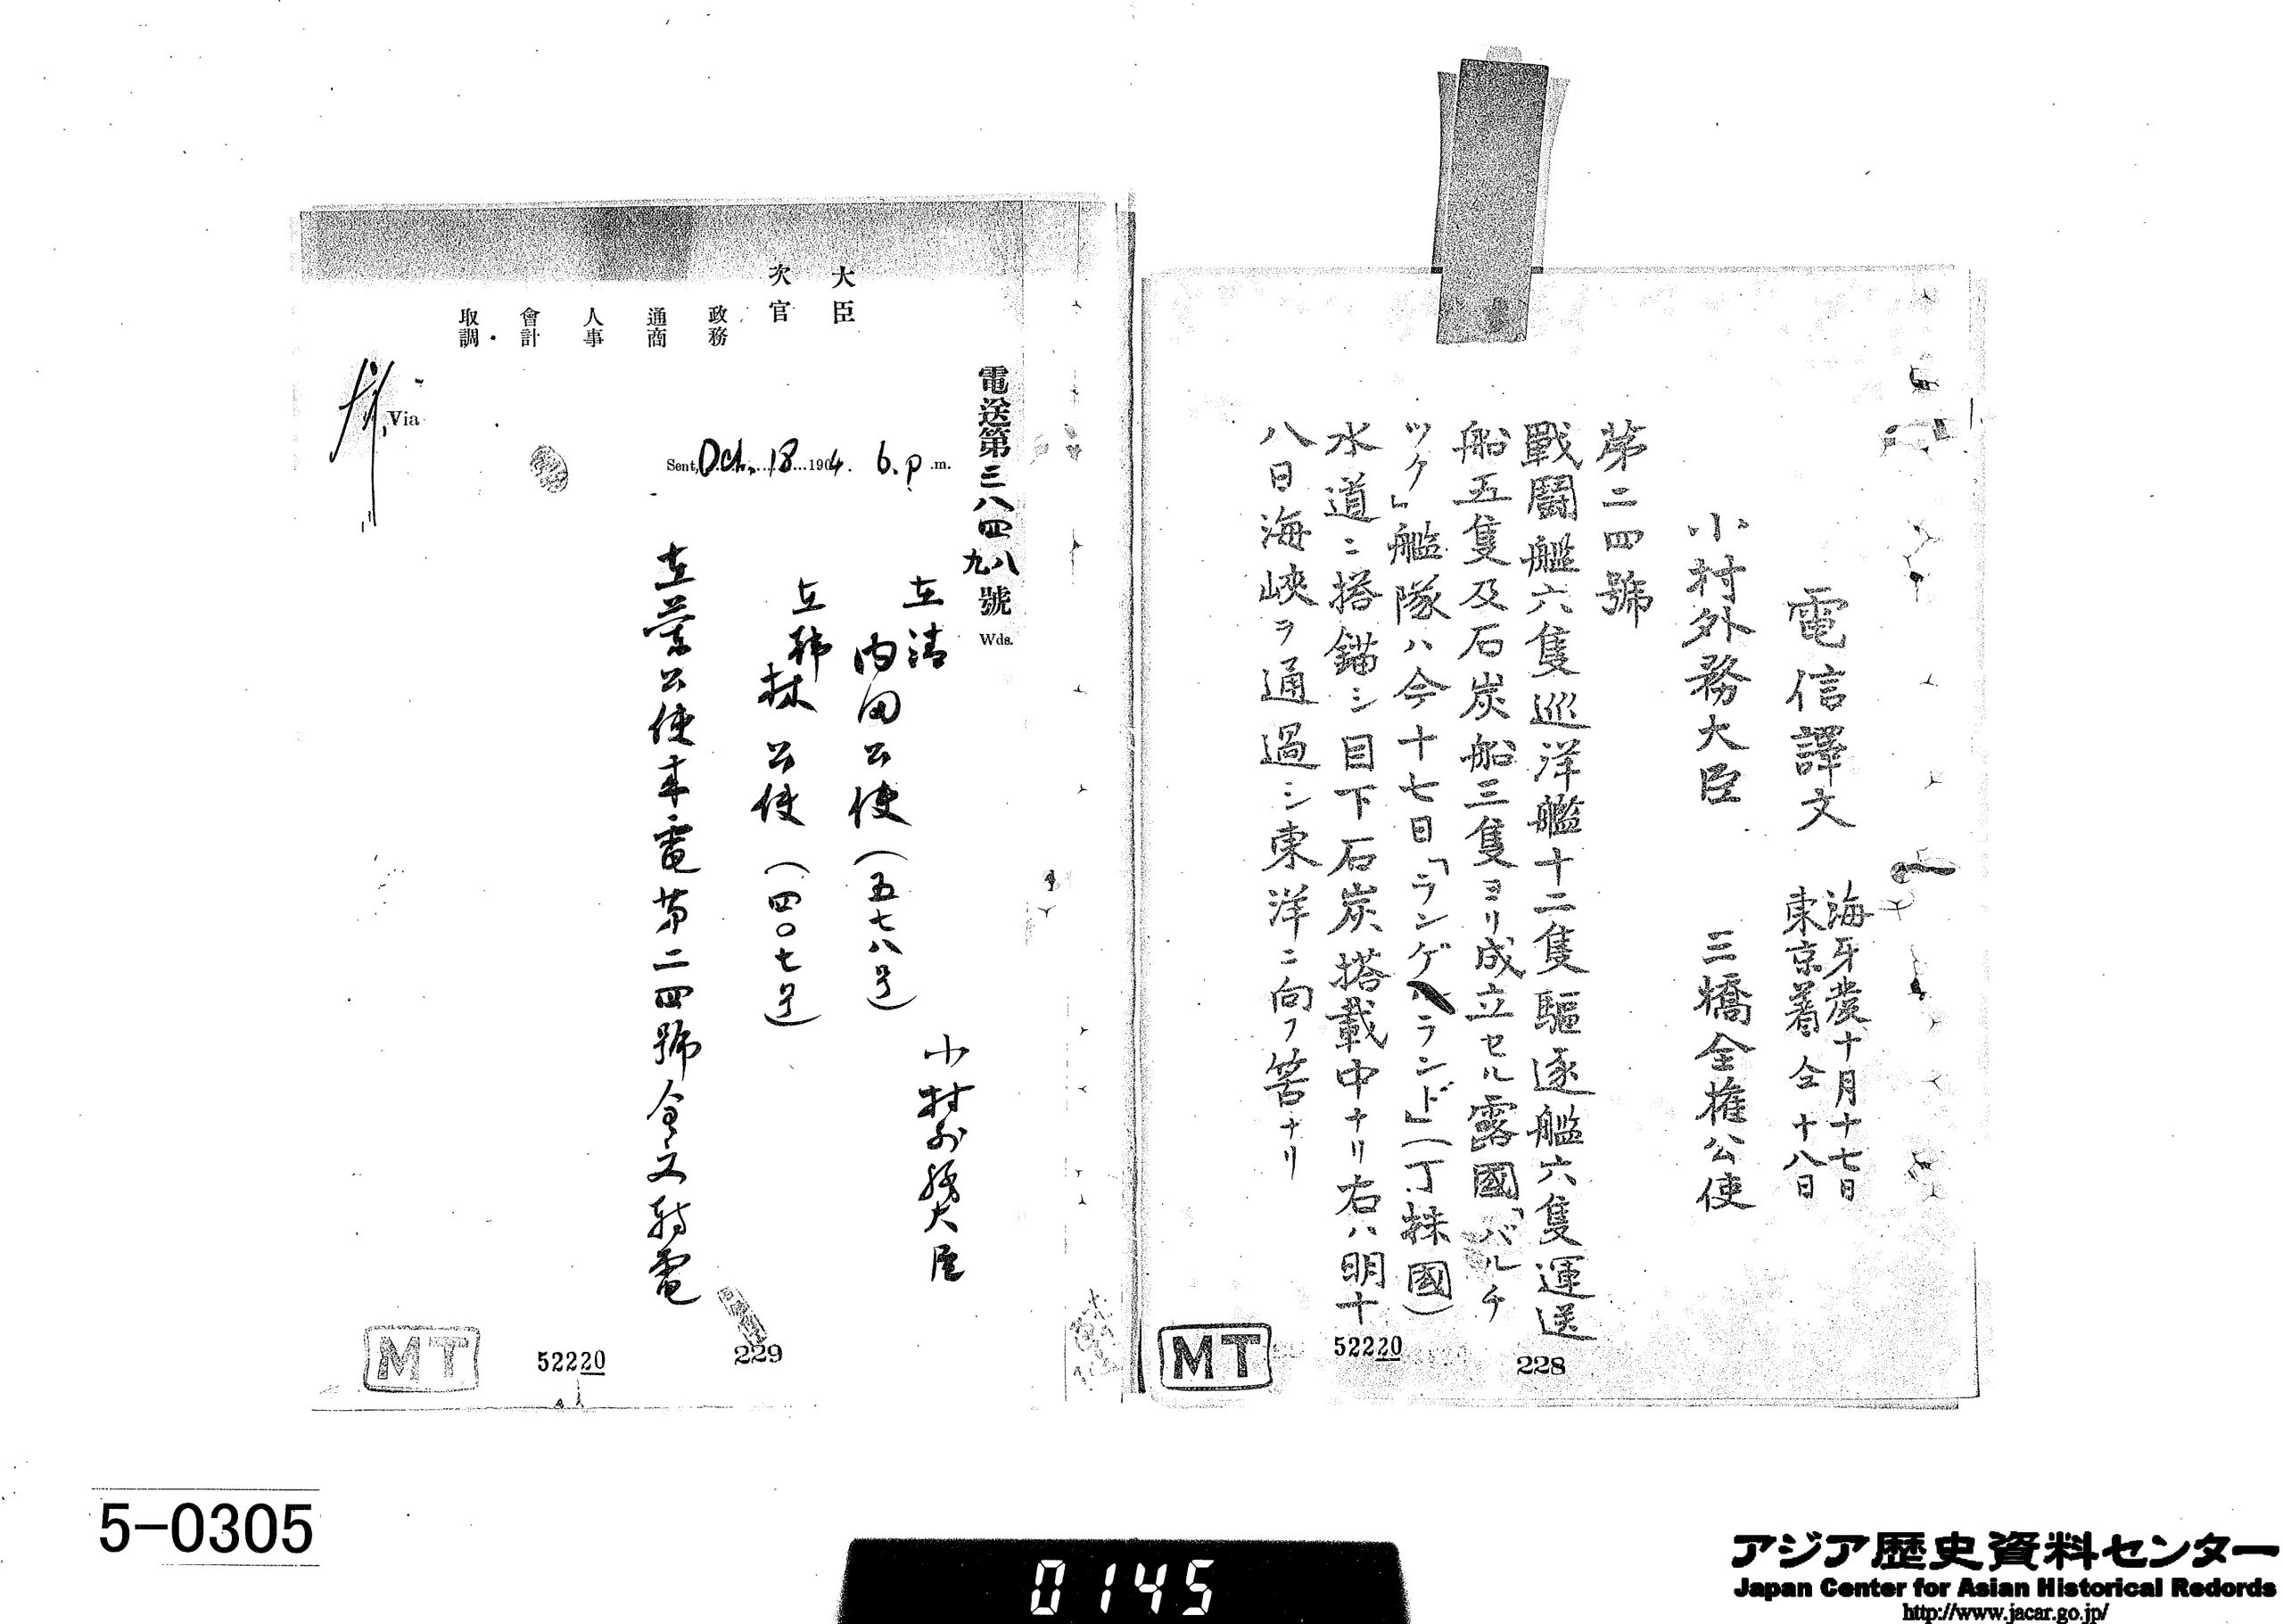 電信譯文
海牙發十月十七日
東京着仝十八日
小村外務大臣
三橋全権公使
第二四號
戰鬪艦六隻巡洋艦十二隻驅逐艦六隻運送
船五隻及石炭船三隻ヨリ成立セル露國「バルチ
ツク」艦隊ハ今十七日「ランゲランド」(丁抹國)
水道ニ搭錨シ目下石炭搭載中ナリ右ハ明十
八日海峽ヲ通過シ東洋ニ向フ筈ナリ
MT
52220
228
大臣
次官
政務
通商
人事
會計
取調
電送第三八四八號
九
Wds.
Sent, Oct. 18 1904. 6. p.m.
Via
小村外務大臣
在清
内田公使(五七八号)
在韓
林公使(四〇七号)
在蘭公使来電第二四號全文轉電
MT
52220
229
5-0305
0145
アジア歴史資料センター
Japan Center for Asian Historical Redords
http://www.jacar.go.jp/